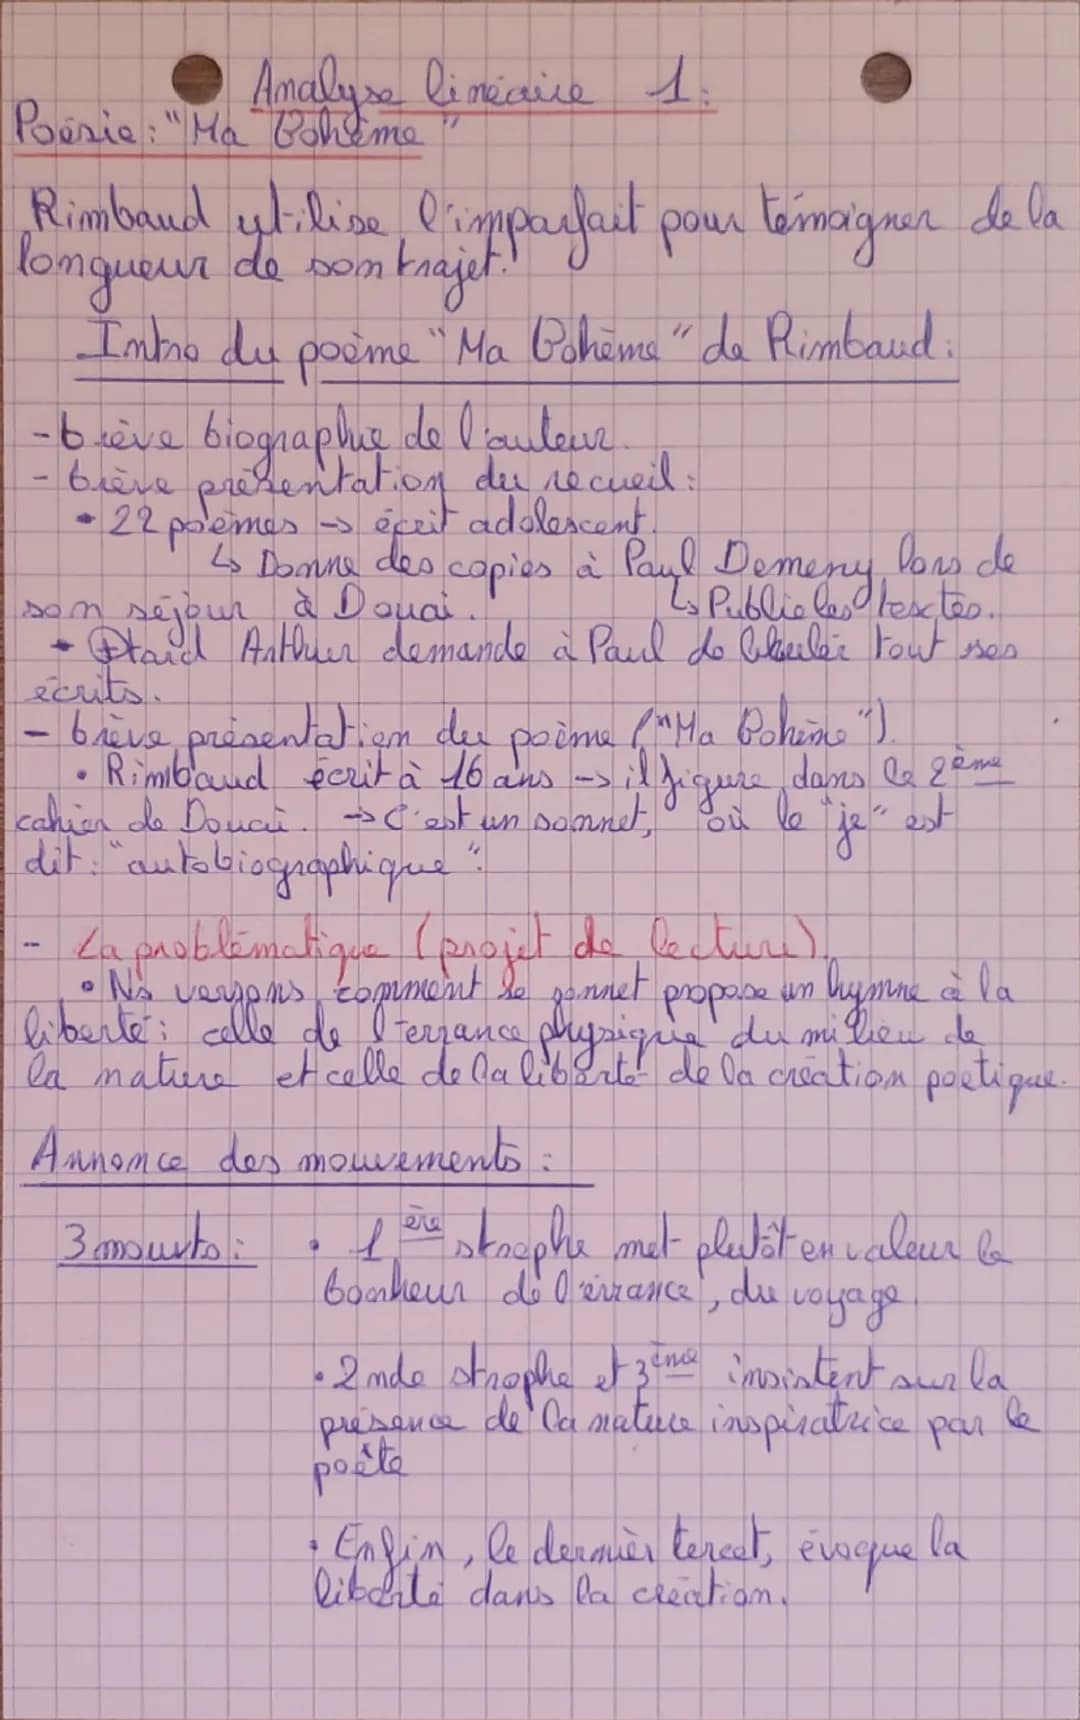 Analyse linéaire 1:
Poésie : "Ma Bohème"
Rimbaud utilise l'imparfait pour témoigner de la
longueur de son trajet.
Intro du poème "Ma Bohème" de Rimbaud :
- brève biographie de l'auteur.
- brève présentation du recueil :
• 22 poèmes → écrit adolescent.
↳ Donne des copies à Paul Demeny lors de
son séjour à Douai. ↳ Publie les textes.
• + tard Arthur demande à Paul de brûler tout ses
écrits.
- brève présentation du poème ("Ma Bohème").
• Rimbaud écrit à 16 ans → il figure dans le 2ème
cahier de Douai. → C'est un sonnet, où le "je" est
dit : "autobiographique".
- La problématique (projet de lecture).
• Ns verrons comment le sonnet propose un hymne à la
liberté : celle de l'errance physique du milieu de
la nature et celle de la liberté de la création poétique.
Annonce des mouvements :
3 mouvts : • 1ère strophe met plutôt en valeur le
bonheur de l'errance, du voyage.
• 2nde strophe et 3ème insistent sur la
présence de la nature inspiratrice par le
poète
• Enfin, le dernièr tercet, évoque la
liberté dans la création.